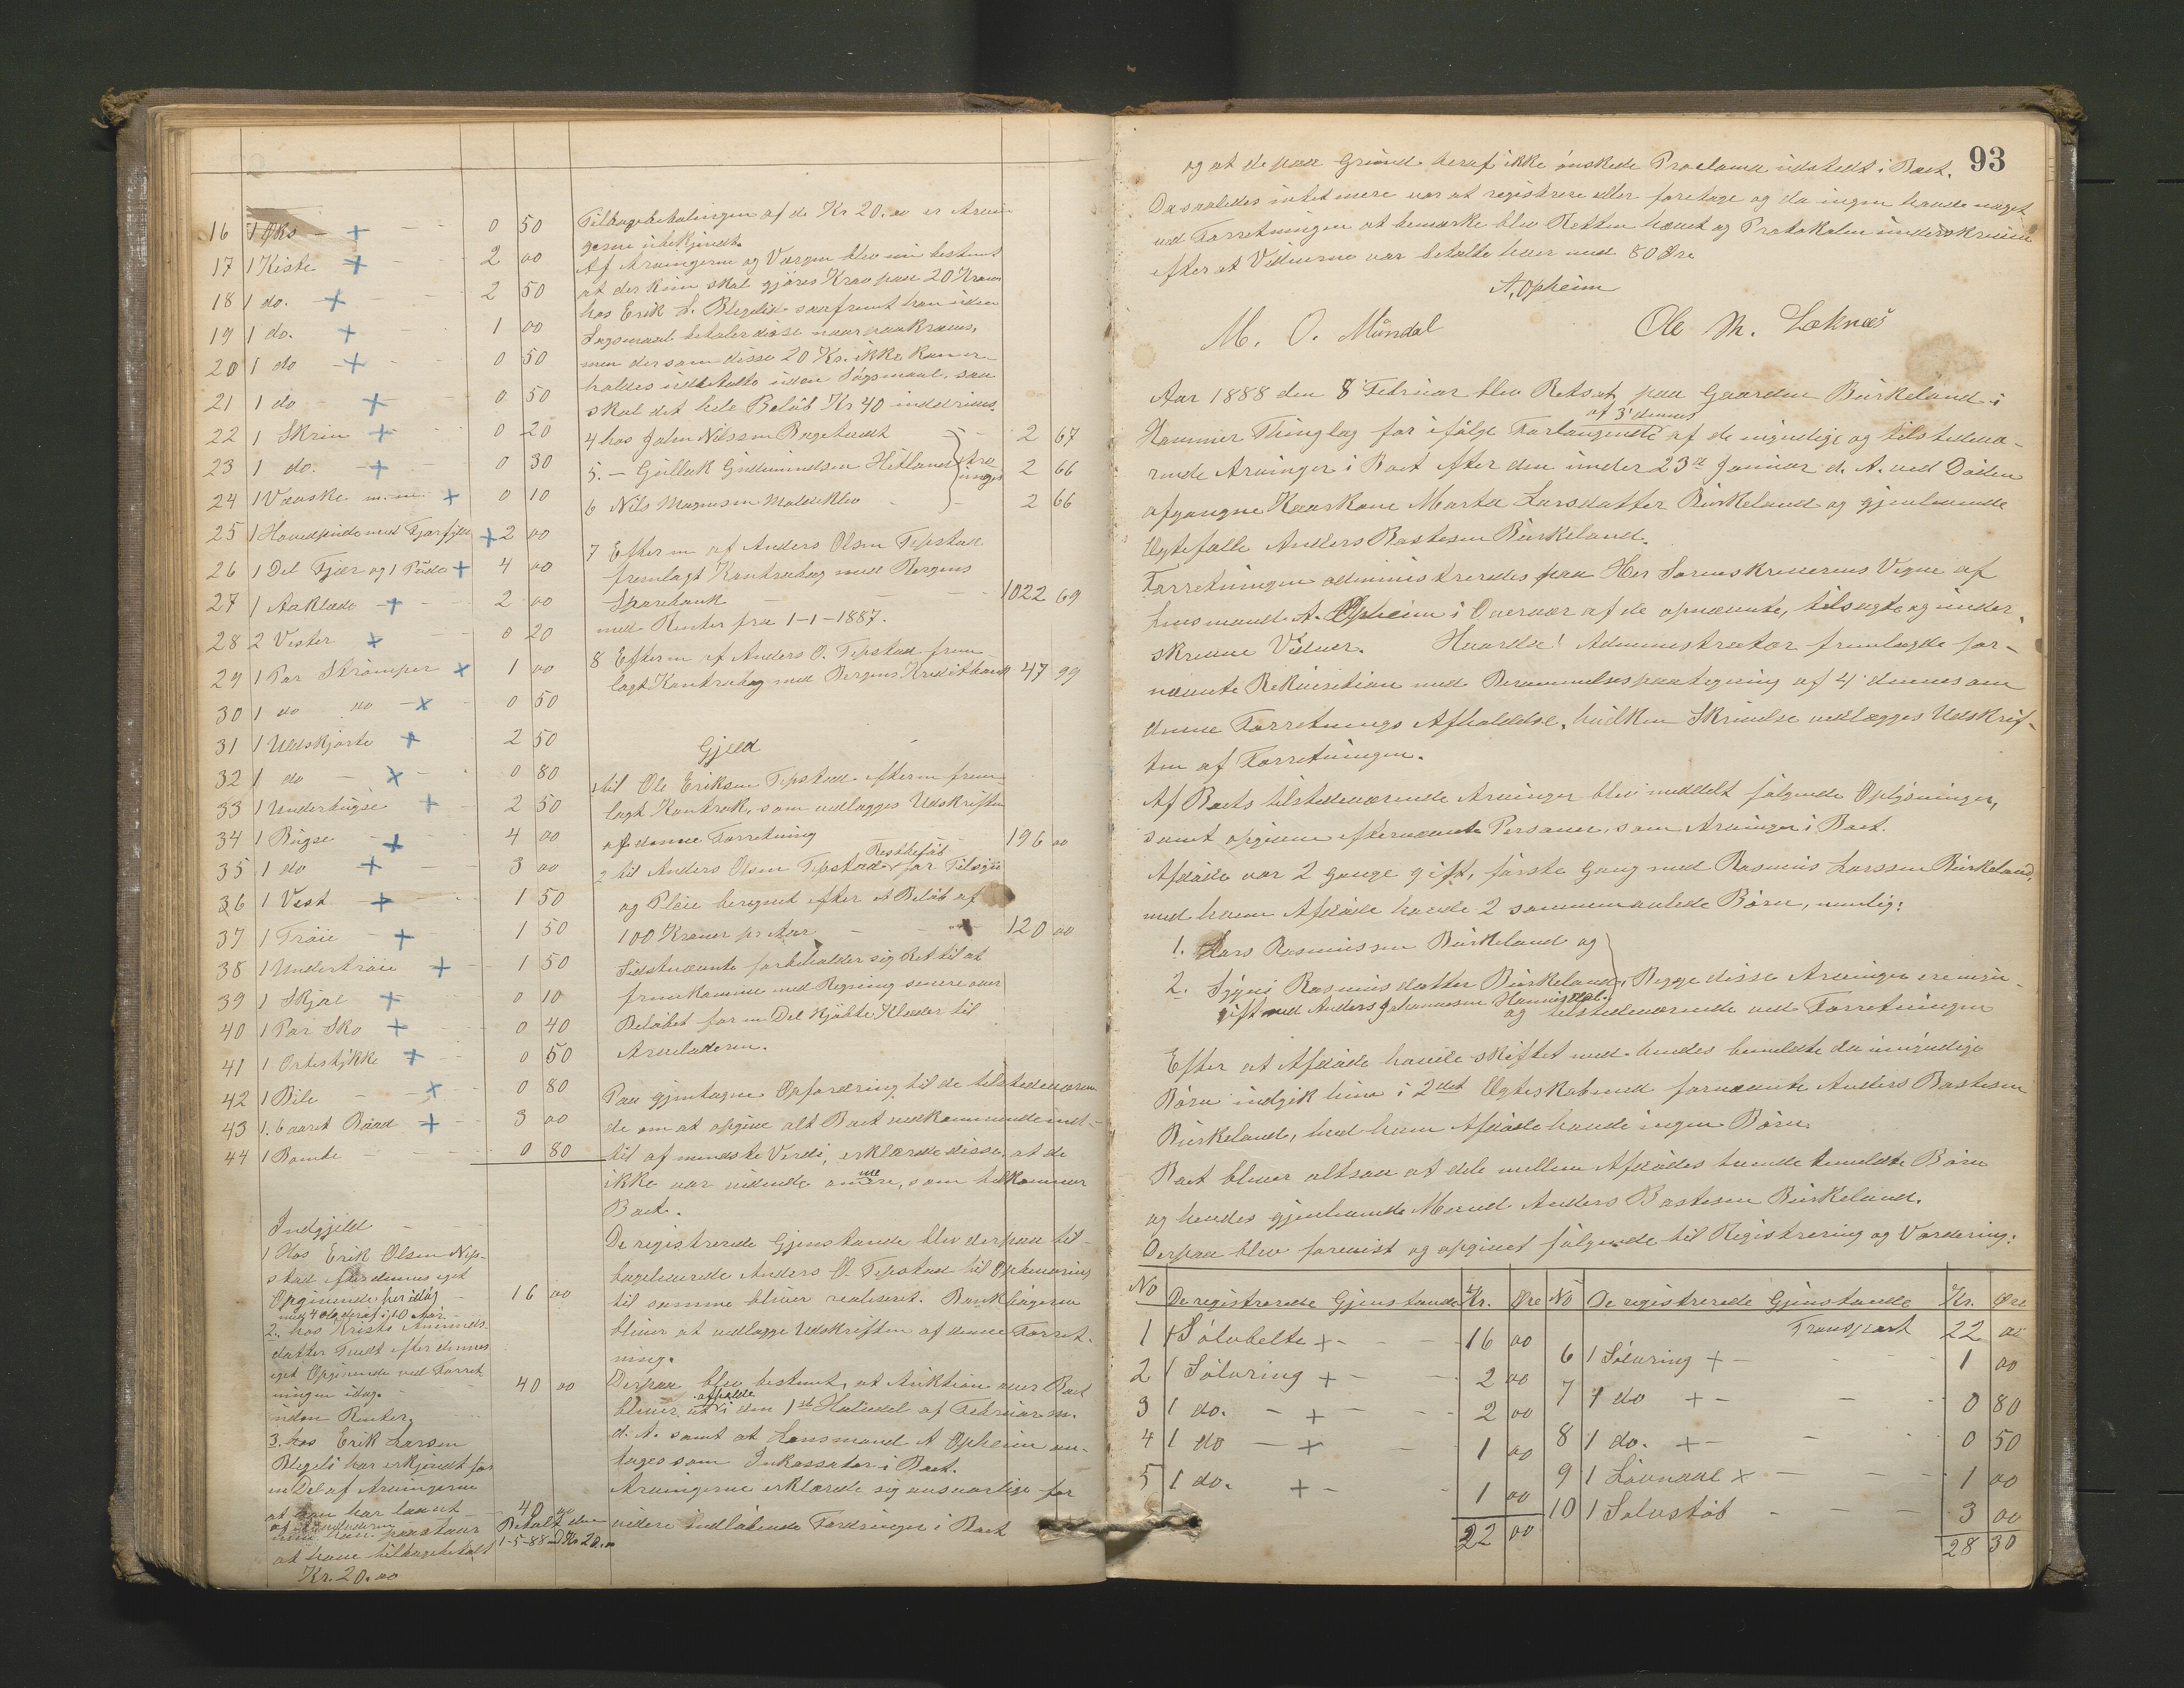 16 1 Øks + 0 50
17 1 Kiste + 2 00
18 1 do. + 2 50
19 1 do. + 1 00
20 1 do + 0 50
21 1 do + 0 50
22 1 Skrin + 0 20
23 1 do. + 0 30
24 1 Væske m. m. + 0 10
25 1 Hovedpude med Fjærfyld + 2 00
26 1 Del Fjær og 1 Pude + 4 00
27 1 Aaklæde + 2 00
28 2 Vester + 0 20
29 1 Par Strømper + 1 00
30 1 do do + 0 50
31 1 Uldskjorte + 2 50
32 1 do + 0 80
33 1 Underbugse + 2 50
34 1 Bugse + 4 00
35 1 do + 3 00
36 1 Vest + 1 50
37 1 Trøie + 1 50
38 1 Undertrøie + 1 50
39 1 Skjæl + 0 10
40 1 Par Sko + 0 40
41 1 + 0 50
42 1 Bile + 0 80
43 1. 6 aaret Baad + 3 00
44 1 0 80
Indgjeld
1 Hos Erik Olsen
stad efter dennes eget
Opgivende per idag 16 00
2. hos Kristi
datter Tvedt efter dennes
eget Opgivende ved Forret
ningen idag. 40 00
uden Renter.
3. hos Erik Larsen
har erkjendt for
en Del af Arvingerne
at han har laant 40 00
men han paastaar Betalt den
at have tilbagebetalt 1-5-88 med Kr 20.00
Kr. 20.00
Tilbagebetalingen af de Kr 20.00 er Arvin
gerne ubekjendt.
Af Arvingerne og Værgen blev nu bestemt
at der kun skal gjøres Krav paa 20 Kroner
hos Erik L. saafremt han uden
Søgsmaal betaler disse naar paakræves,
men dersom disse 20 Kr. ikke kan er-
holdes udbetalte uden Søgsmaal, saa
skal det hele Beløb Kr 40 inddrives.
4 hos John Nilssen 2 67
5. — Gullak Gudmundsen Hetland 2 66
6 Nils Magnesen 2 66
7 Efterm af Anders Olsen Tepstad
fremlagt Kontrabog med Bergens
Sparebank 1022 69
med Renter fra 1-1-1887.
8 Efterm af Anders O. Tepstad frem
lagt Kontrabog med Bergens Kreditbank 47 99
Gjeld
1 til Ole Eriksen Tepstad efterm frem
lagt Kontrak, som vedlægges Udskriften
af denne Forretning 196 00
2 til Anders Olsen Tepstad Restbeløb for Tilsyn
og Pleie beregnet efter et Beløb af
100 Kroner pr Aar 120 00
Sidstnævnte forbeholder sig Ret til at
fremkomme med Regning senere over
Beløbet for en Del kjøbte Klæder til
Arveladeren.
Paa gjentagne Opfordring til de tilstedeværen
de om at opgive alt Boet vedkommende ind-
til af mindste Værdi, erklærede disse, at de
ikke var vidende om mere, som tilkommer
Boet.
De registrerede Gjenstande blev derpaa til-
bageleverede Anders O. Tepstad til Opbevaring
til samme bliver realiseret. Bankbøgerne
bliver at vedlægge Udskriften af denne Forret-
ning.
Derpaa blev bestemt, at Auktion over Boet
bliver at afholde i den 1ste Halvdel af Februar m.
d. A. samt at Lensmand A Opheim an-
tages som Inkassator i Boet.
Arvingerne erklærede sig ansvarlige for
videre indløbende Fordringer i Boet
93
og at de paa Grund heraf ikke ønskede Proclama udstedt i Boet.
Da saaledes intet mere var at registrere eller foretage og da ingen havde noget
ved Forretningen at bemærke blev Retten hævet og Protokolen underskreven
efter at Vidnerne var betalte hver med 80 Øre
A. Opheim
M. O. Mundal Ole M. Loknes
Aar 1888 den 8 Februar blev Retsat paa Gaarden Birkeland i
Hammer Thinglag for ifølge Forlangende af 3' dennes af de myndige og tilstedevæ-
rende Arvinger i Boet efter den under 23de Januar d. A. ved Døden
afgangne Kaarkone Marta Larsdatter Birkeland og gjenlevende
Ægtefælle Anders Bastesen Birkeland.
Forretningen administreredes paa Hr Sorenskriverens Vegne af
Lensmand A. Opheim i Overvær af de opnævnte, tilsagte og under-
skrevne Vidner. Hvorda! Administrator fremlagde for-
nævnte Rekvisition med Berammelsespaategning af 4' dennes om
denne Forretnings Afholdelse, hvilken Skrivelse vedlægges Udskrif-
ten af Forretningen.
Af Boets tilstedeværende Arvinger blev meddelt følgende Oplysninger,
samt opgiven efternævnte Personer, som Arvinger i Boet.
Afdøde var 2 Gange gift, første Gang med Rasmus Larssen Birkeland,
med ham Afdøde havde 2 sammenavlede Børn, nemlig:
1. Lars Rasmussen Birkeland og
2. Rasmusdatter Birkeland, Begge disse Arvinger ere myn-
gift med Anders Johannesen og tilstedeværende ved Forretningen
Efter at Afdøde havde skiftet med hendes bemeldte da umyndige
Børn indgik hun i 2det Ægteskab med fornævnte Anders Bastesen
Birkeland, med ham Afdøde havde ingen Børn.
Boet bliver altsaa at dele mellem Afdødes tvende bemeldte Børn
og hendes gjenlevende Mand Anders Bastesen Birkeland.
Derpaa blev forevist og opgivet følgende til Registrering og Vardering:
No De registrerede Gjenstande Kr. Øre No De registrerede Gjenstande Kr. Øre
Transport 22 00
1 1 Sølvbelte + 16 00 6 1 Sølvring + 1 00
2 1 Sølvring + 2 00 7 1 do + 0 80
3 1 do. + 2 00 8 1 do. + 0 50
4 1 do + 1 00 9 1 + 1 00
5 1 do. + 1 00 10 1 Sølvstøb 3 00
22 00 28 30